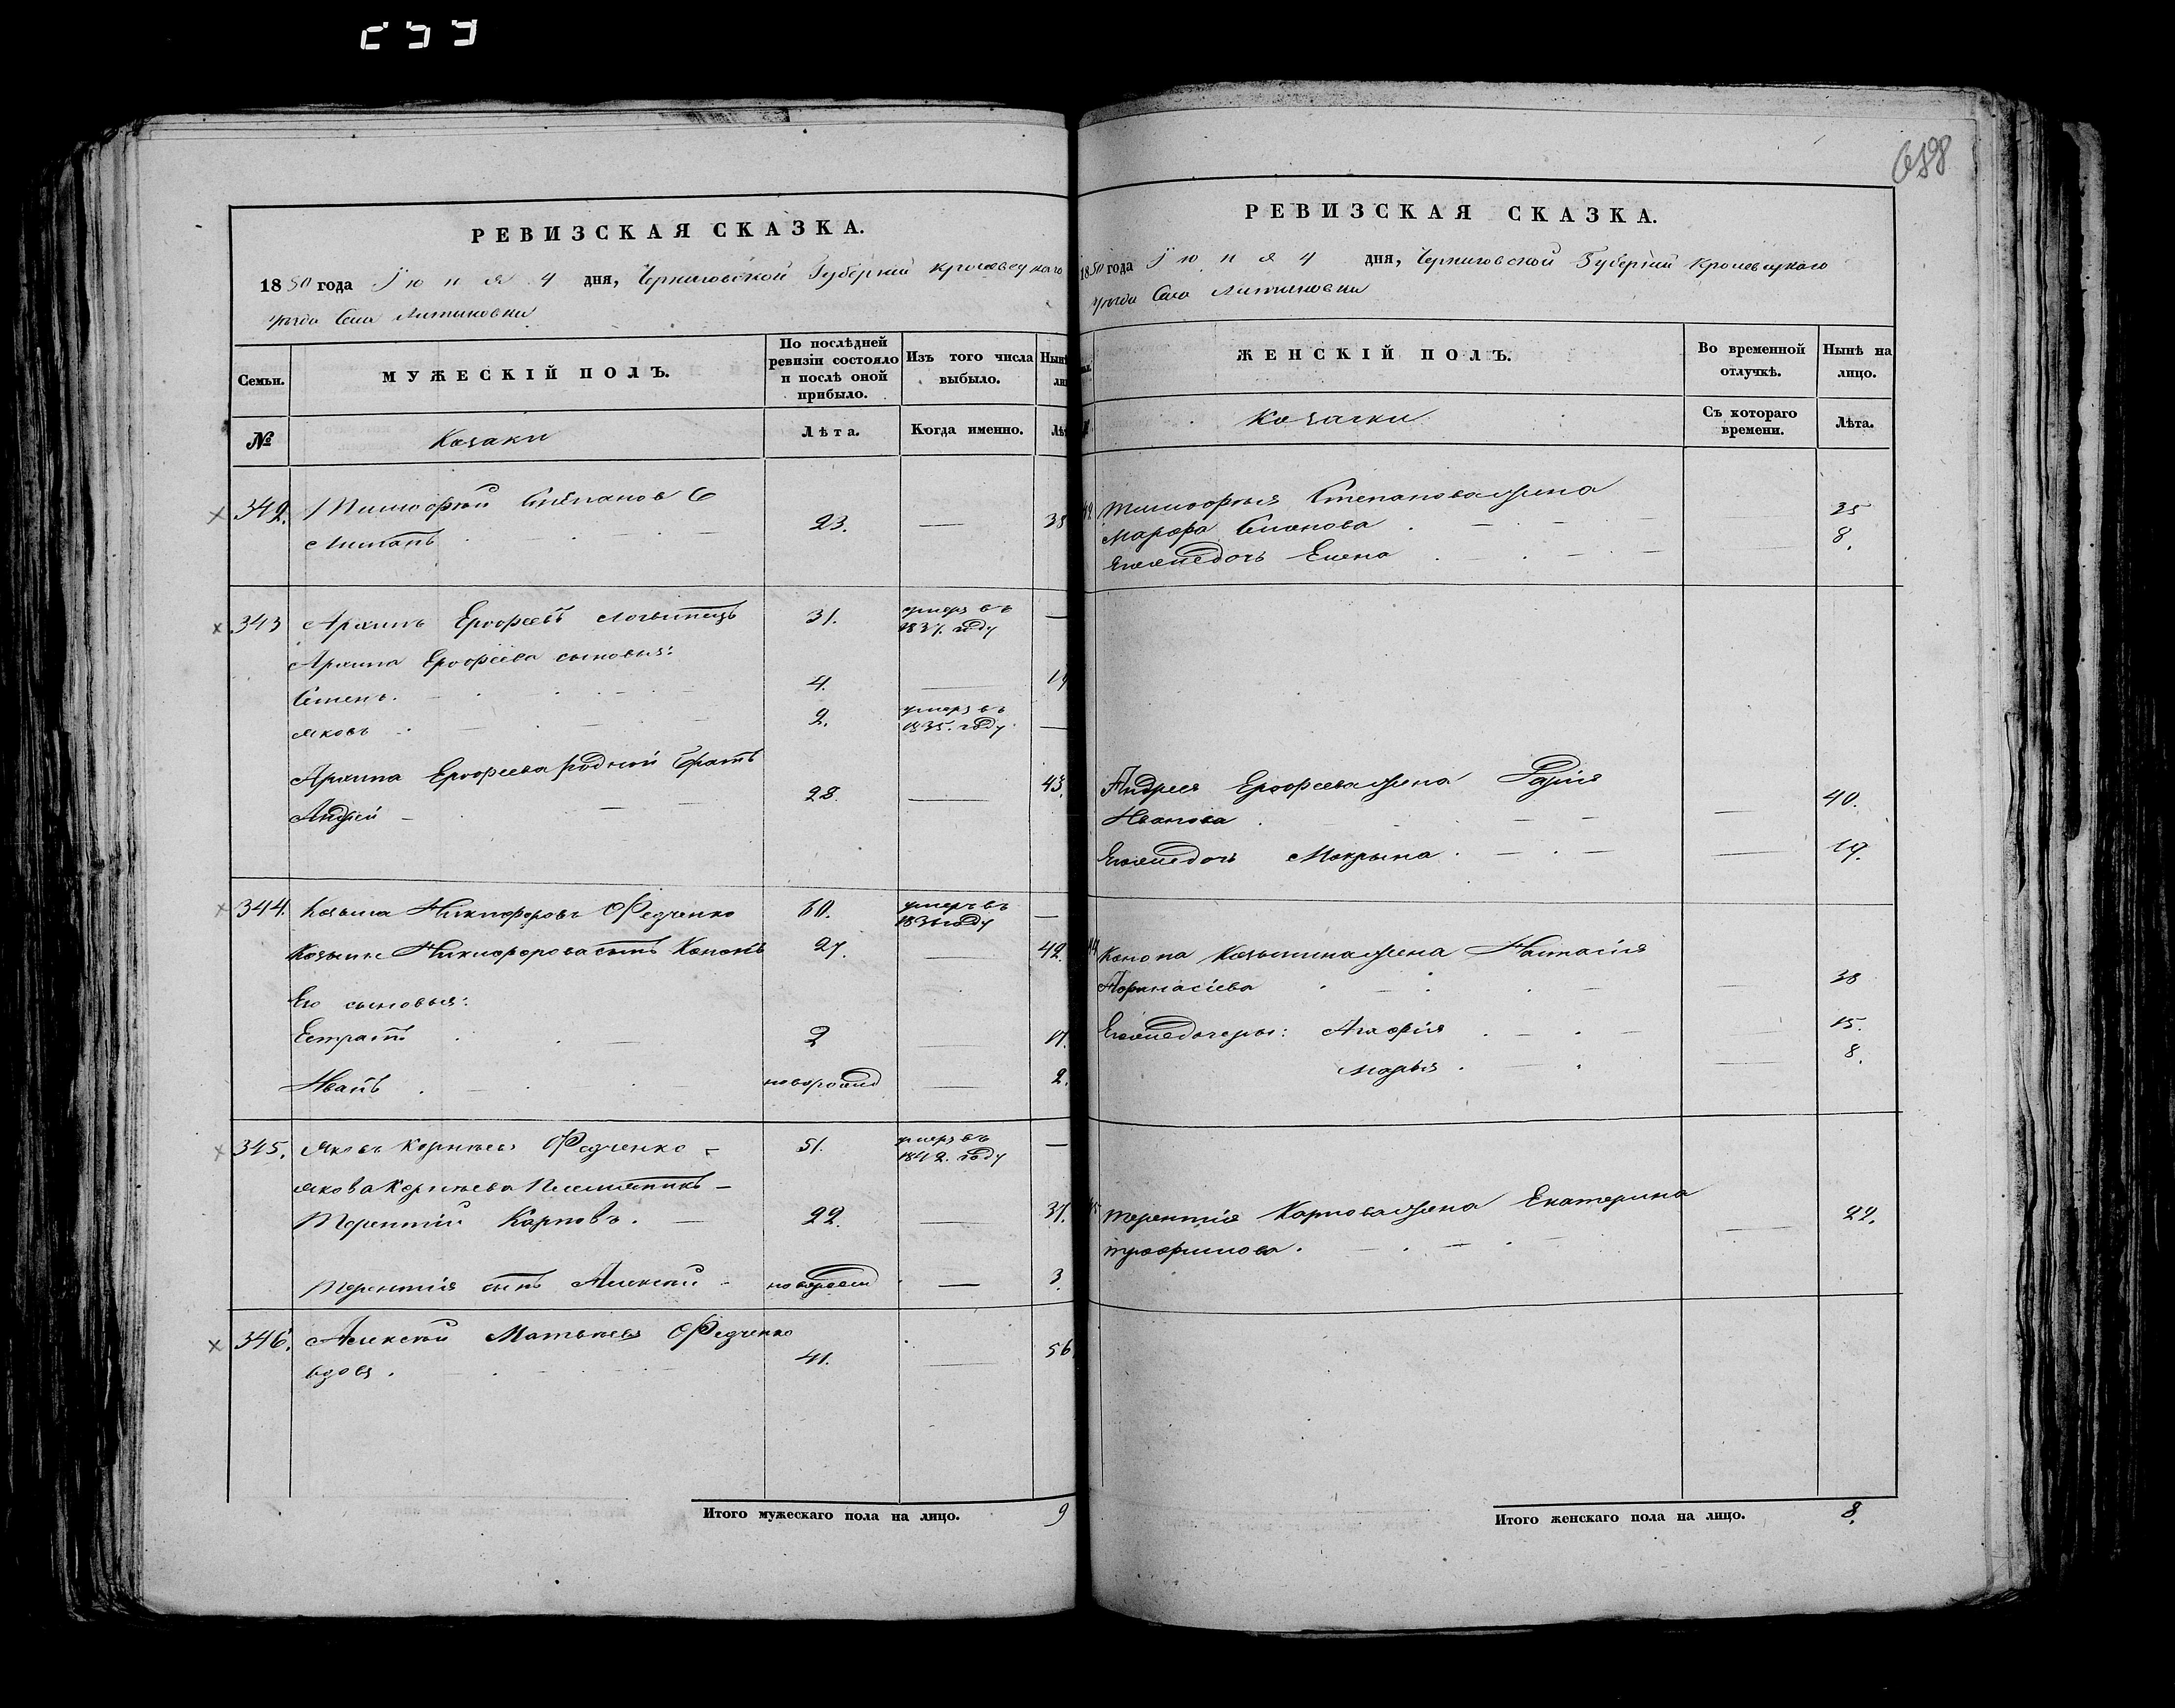 РЕВИЗСКАЯ СКАЗКА.
1850 года Іюня 4 дня, Черниговской Губерніи Кролевецкаго
уезда Села Литвиновки
Семьи.
МУЖЕСКІЙ ПОЛЪ.
По послѣдней
ревизіи состояло
и послѣ оной
прибыло.
Изъ того числа
выбыло.
№
Козаки
Лѣта.
Когда именно.
342. Тимофѣй Степановъ
23. — 38
343 Архипъ Ерофеевъ 31. умеръ въ
1837. году —
Архипа Ерофеева сыновья:
Семенъ. 4. — 19
Яковъ 2. умеръ въ
1835. году —
Архипа Ерофеева родной братъ
Андрей — 28. — 43.
344. Козьма Никифоровъ Федченко 60. умеръ въ
году —
Козьмы Никифорова сынъ Кононъ 27. — 42.
Его сыновья:
Естратъ 2 — 17.
Иванъ новорожд — 2.
345. Яковъ Корнѣевъ Федченко 51. умеръ въ
1842. году —
Якова Корнѣева Племянникъ —
Терентій Карповъ. 22. — 37.
Терентія сынъ Алексѣй новорожд — 3.
346. Алексѣй Матвѣевъ Федченко
вдовъ. 41. — 56
Итого мужескаго пола на лицо. 9
698
РЕВИЗСКАЯ СКАЗКА.
1850 года Іюня 4 дня, Черниговской Губерніи Кролевецкаго
уезда Села Литвиновки
ЖЕНСКІЙ ПОЛЪ.
Во временной
отлучкѣ.
Нынѣ на
лицо.
Козачки
Съ котораго
времени.
Лѣта.
Тимофѣя Степанова жена
Марфа Семенова — 35
Егоже дочь Елена — 8.
Андрея Ерофеева жена
Иванова — 40.
Егоже дочь Мокрына — 19.
Конона Козьмина жена Настасія
Афанасіева — 38
Егоже дочеры: Агафія — 15.
Марья — 8.
Терентія Карпова жена Екатерина
Трофимова. — 22.
Итого женскаго пола на лицо. 8.